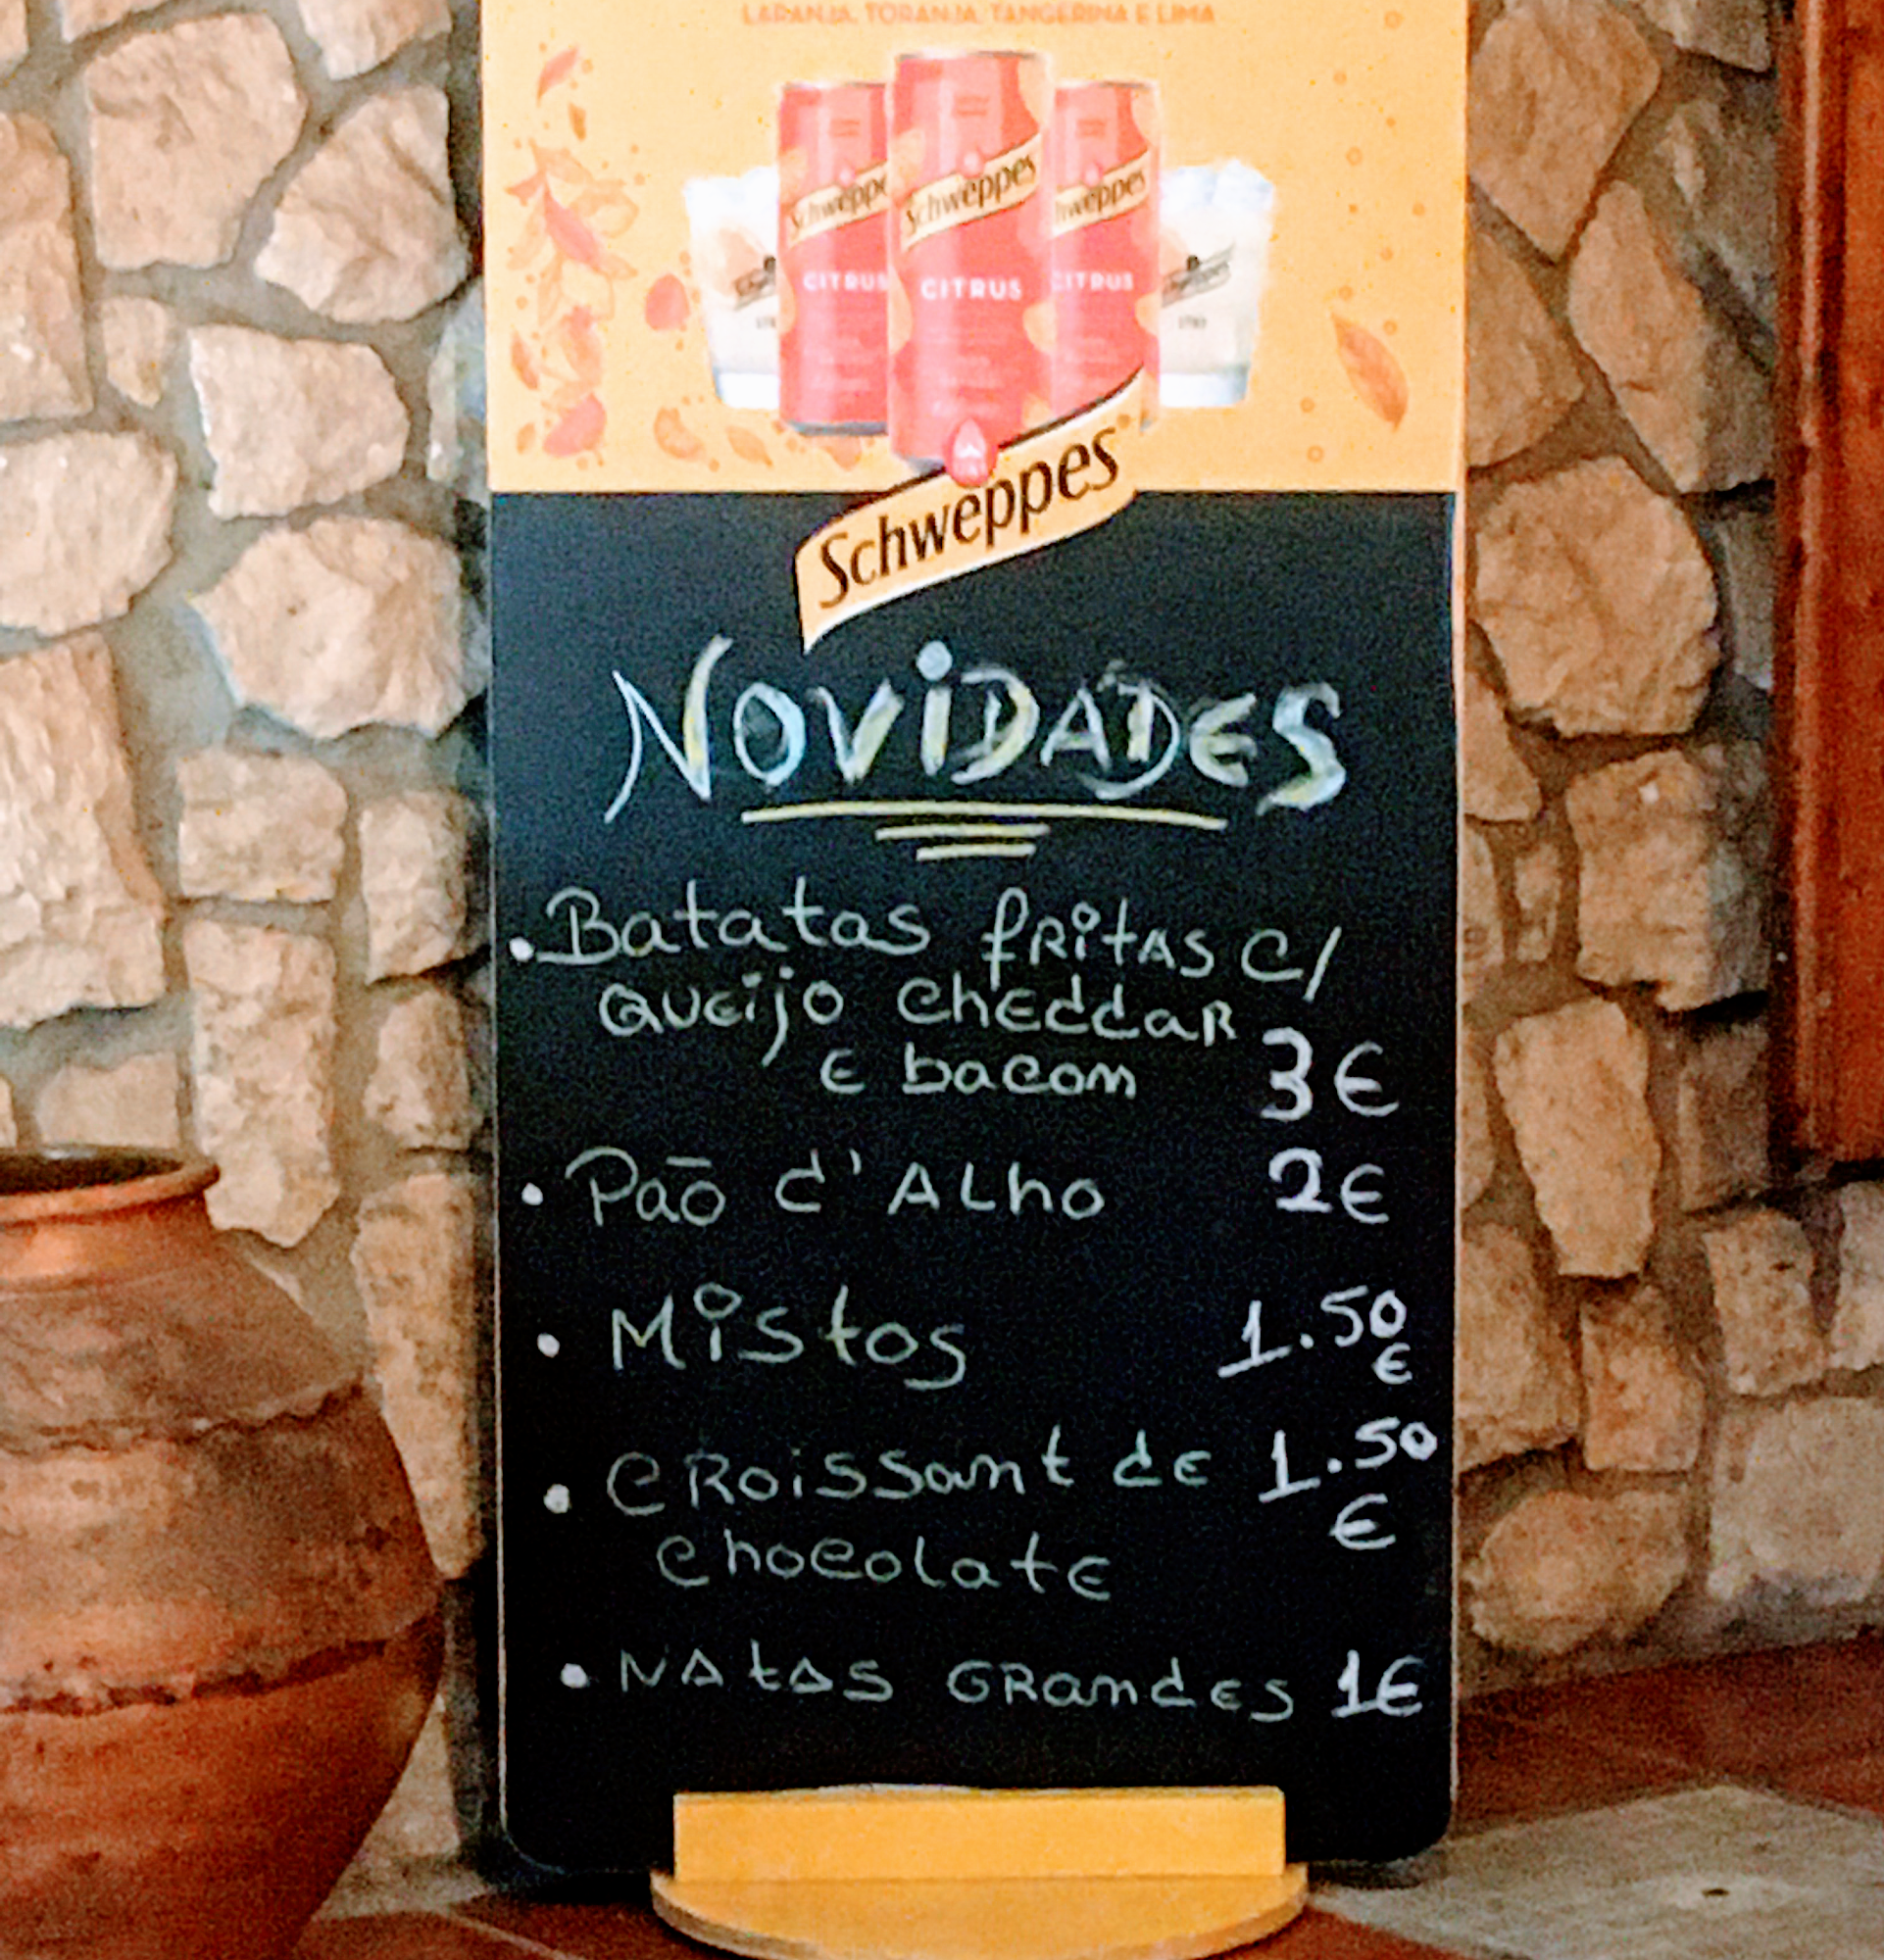 LARANJA, TORANJA, TANGERINA E LIMA
Schweppes
Schweppes
Schweppes
CITRUS
CITRUS
CITRUS
Schweppes
NOViDADES
• Batatas fRitAS c/
QUeijo cheddaR
e bacom 3€
• Paō d'ALho 2€
• Mistos 1.50
€
• CRoissant de 1.50
€
chocolate
• NAtAS GRandes 1€